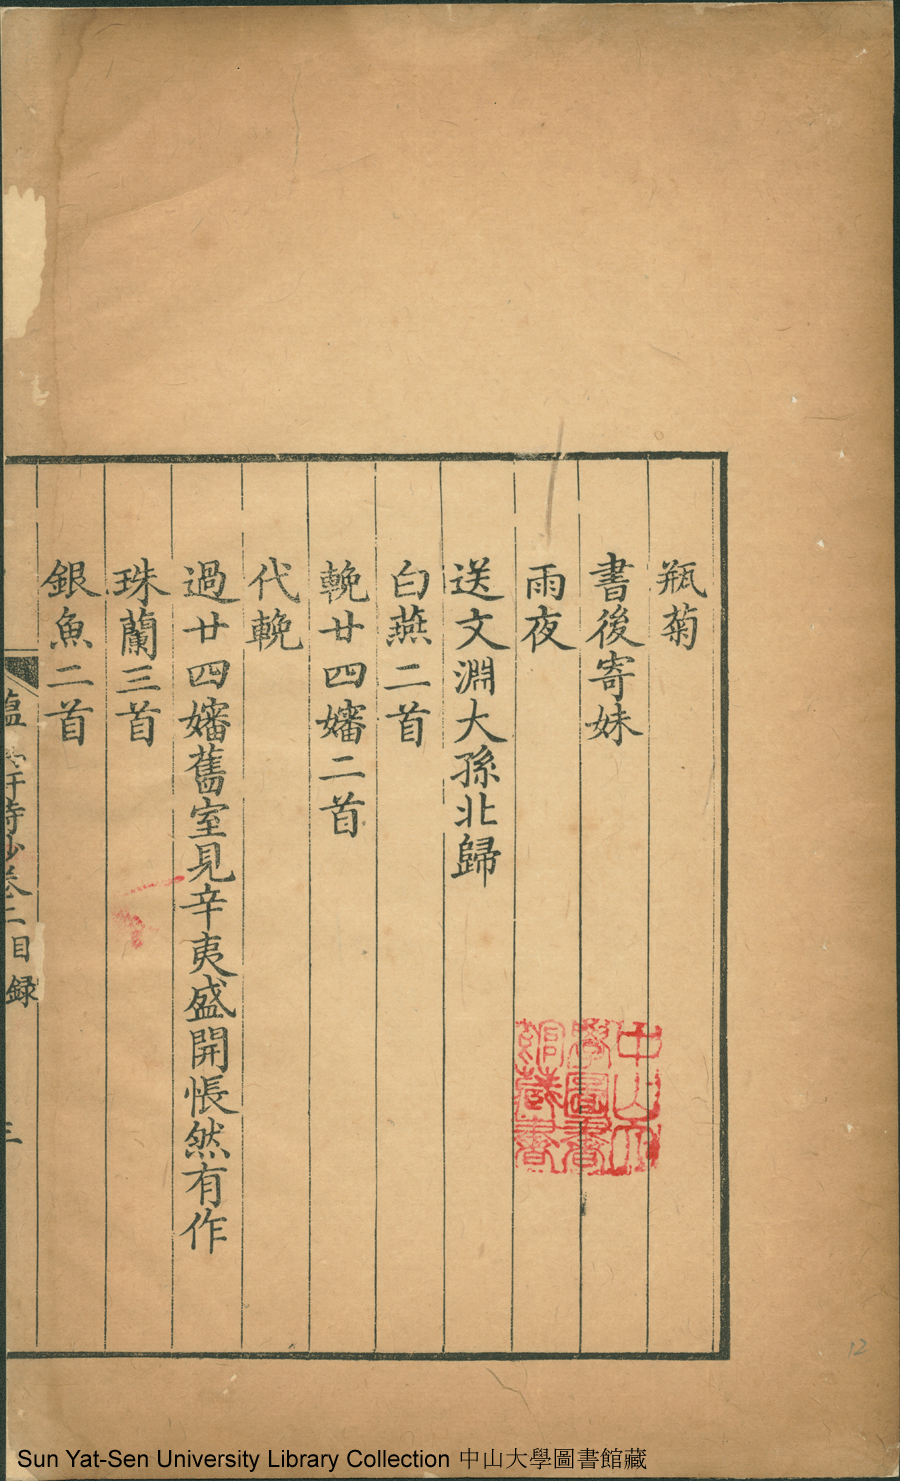 瓶菊
書後寄妹
雨夜
送文淵大孫北歸
白燕二首
輓廿四嬸二首
代輓
過廿四嬸舊室見辛夷盛開悵然有作
珠蘭三首
銀魚二首
詩鈔卷二目録
三
中山大
學圖書
館藏書
12
Sun Yat-Sen University Library Collection 中山大學圖書館藏